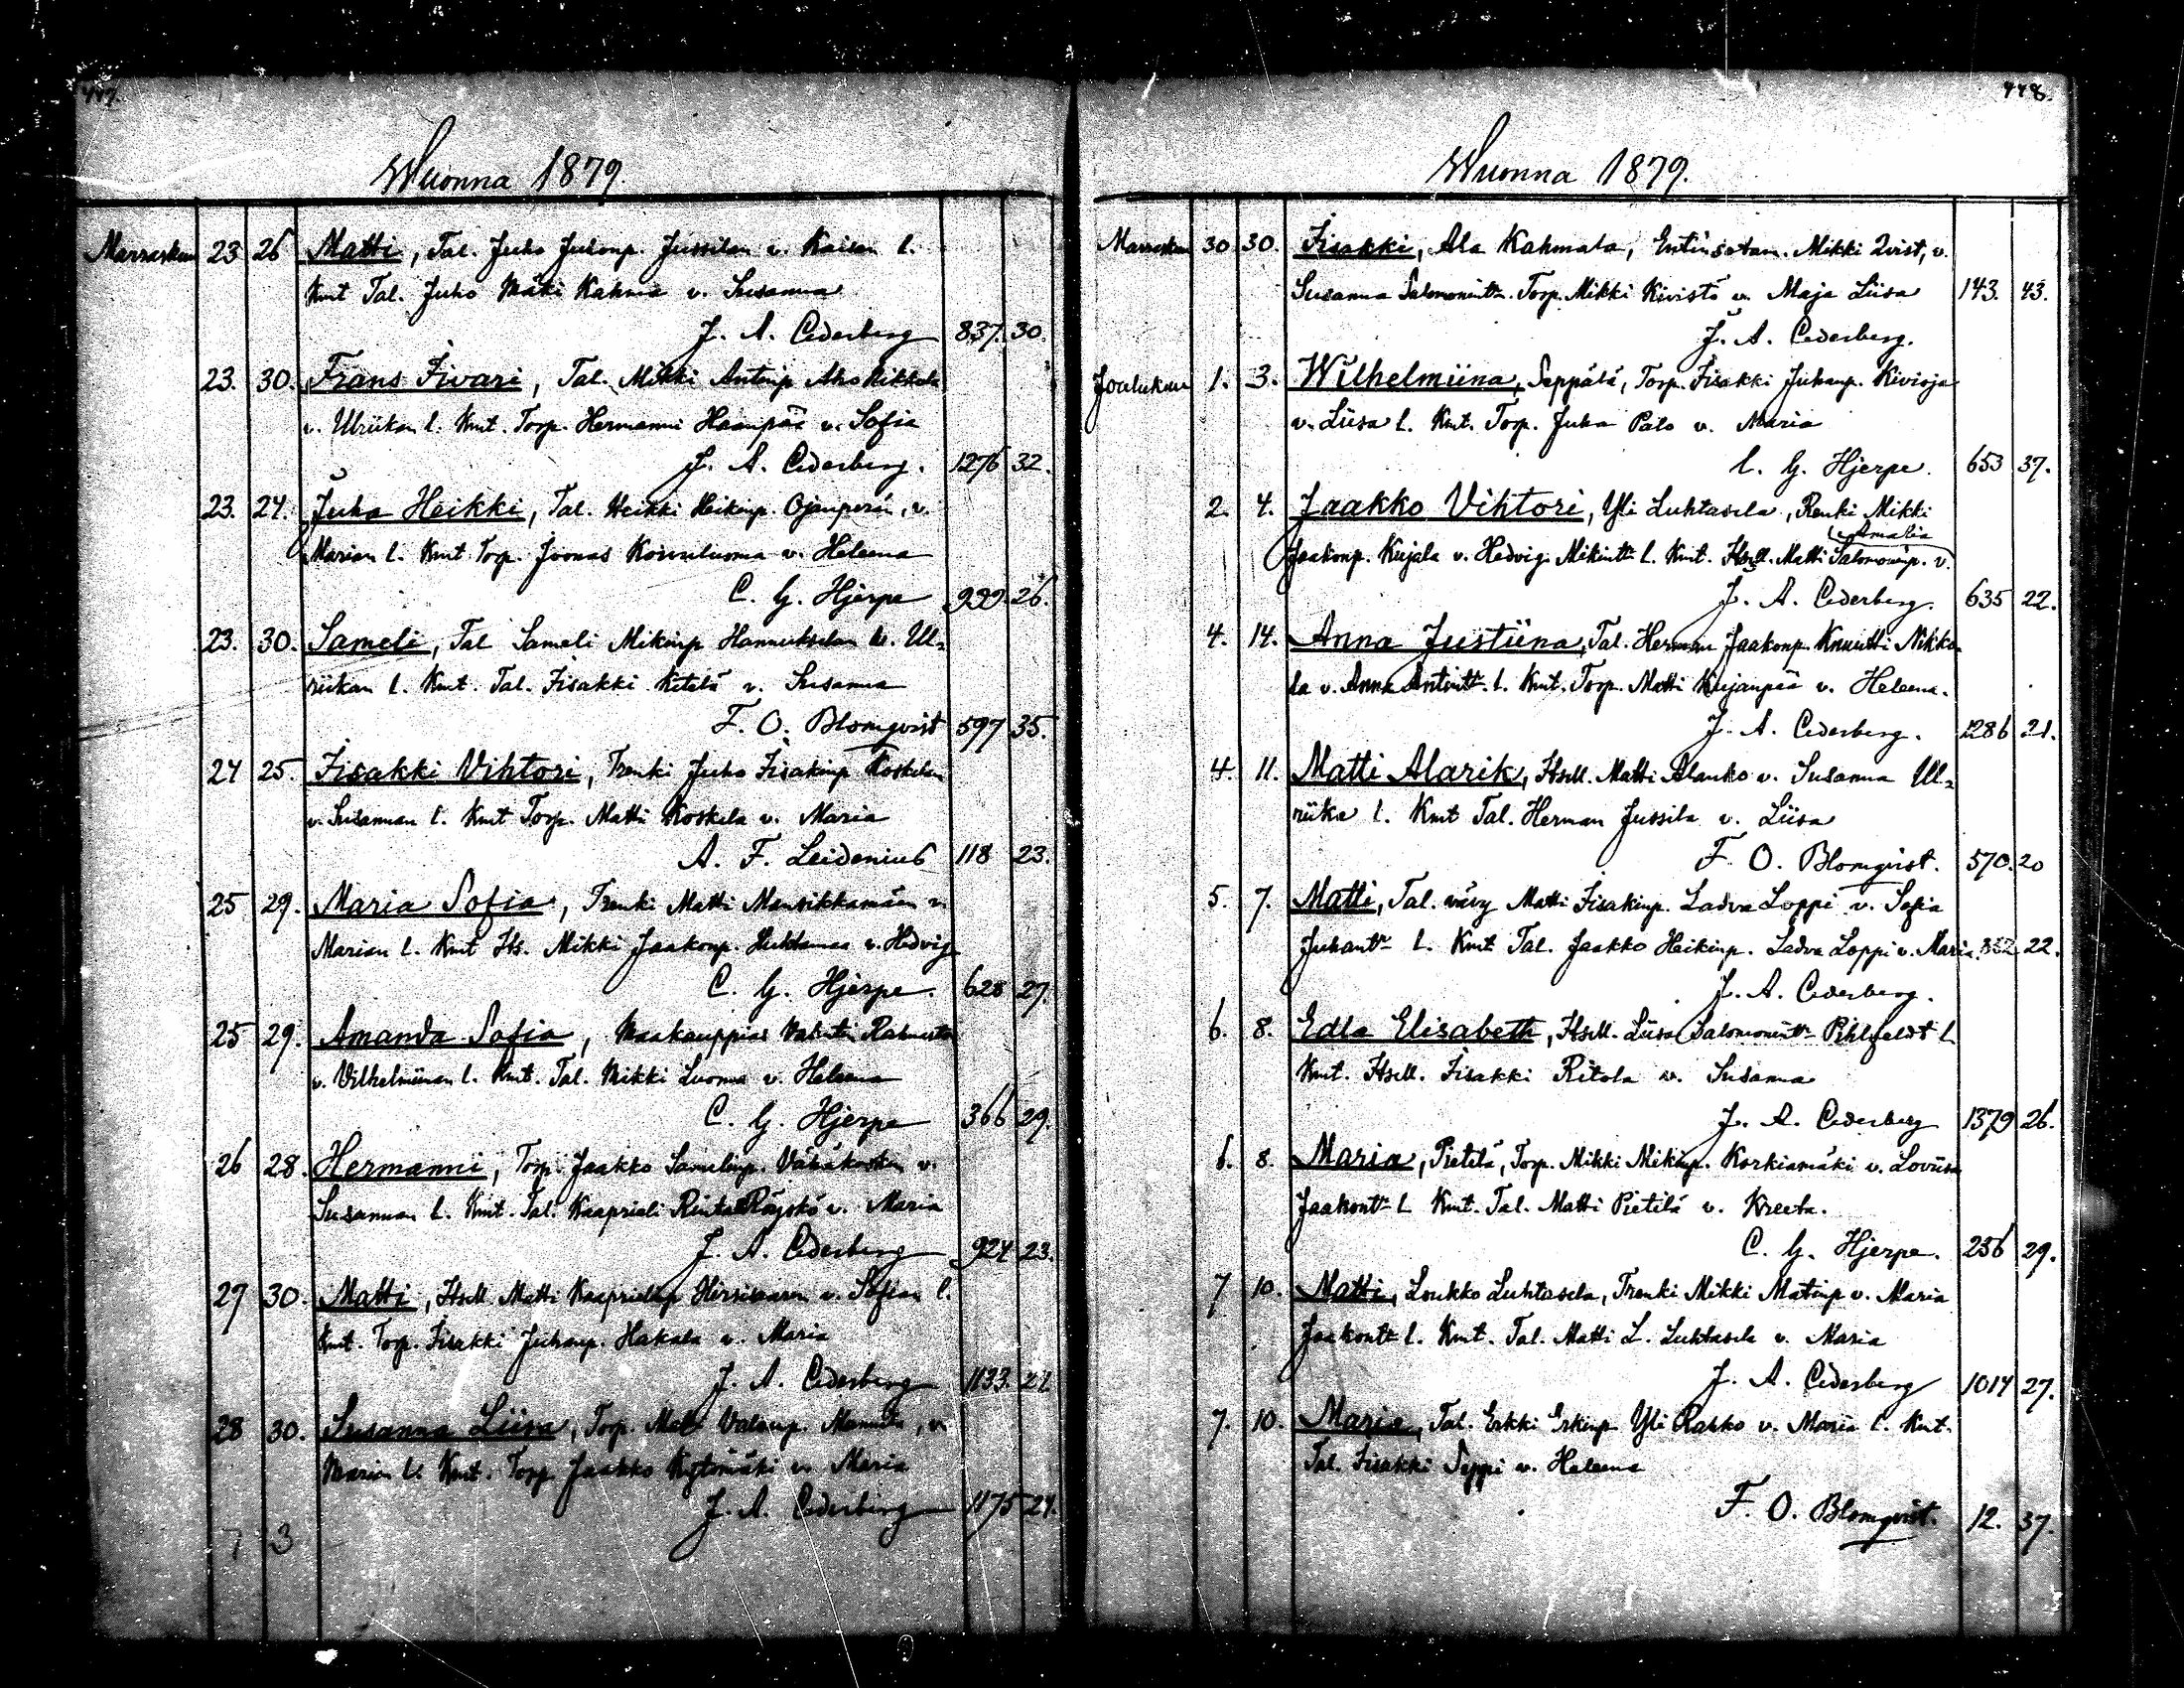 447.
Wuonna 1879.
Marraskun 23 26 Matti, Tal. Juho Juhonp. Jussilan v. Kaisan l.
Kmt Tal. Juho Mäki Kahma v. Susanna
J. A. Cederberg 837. 30.
23. 30. Frans Iivari, Tal. Mikki Antinp. Aho Nikkola
v. Ulriikan l. Kmt. Torp. Hermanni Haanpää v. Sofia
J. A. Cederberg. 1276 32.
23. 24. Juha Heikki, Tal. Heikki Heikinp. Ojanperän, v.
Marian l. Kmt Torp. Joonas v. Heleena
C. G. Hjerpe 990. 26.
23. 30. Sameli, Tal Sameli Mikinp Hannukselan v. Ul=
riikan l. Kmt. Tal. Iisakki Ketelä v. Susanna
F. O. Blomqvist 597 35.
24 25. Iisakki Vihtori, Trenki Juho Iisakinp Koskelan
v. Susannan l. Kmt Torp. Matti Koskela v. Maria
A. F. Leidenius 118 23.
25 29. Maria Sofia, Trenki Matti Mansikkamäen v.
Marian l. Kmt Its. Mikki Jaakonp. Huhtamaa v. Hedvig
C. G. Hjerpe. 628 27.
25 29. Amanda Sofia, Maakauppias
v. Vilhelmiinan l. Kmt. Tal. Mikki Luoma v. Heleena
C. G. Hjerpe 366 29.
26 28. Hermanni, Torp. Jaakko Samelinp. Vähäkosken v.
Susannan l. Kmt. Tal. Kaaprieli Rinta Röyskö v. Maria
J. A. Cederberg 924 23.
27 30. Matti, Itsell. Matti Kaaprielinp Hirsikaaren v. Sofian l.
Kmt. Torp. Iisakki Juhanp. Hakala v. Maria
J. A. Cederberg 1133. 22
28 30. Susanna Liisa, Torp. Matti Mannila, v.
Marian l. Kmt. Torp. Jaakko Kytömäki v. Maria
J. A. Cederberg 1175 21.
7 3
448.
Wuonna 1879.
Marraskun 30 30. Iisakki, Ala Kahmala, Entin. sotam. Mikki Qvist, v.
Susanna Salomonintr. Torp. Mikki Kivistö v. Maja Liisa 143. 43.
J. A. Cederberg.
Joulukun 1. 3. Wilhelmiina, Seppälä, Torp. Iisakki Juhanp. Kivioja
v. Liisa l. Kmt. Torp. Juha Palo v. Maria
C. G. Hjerpe. 653 37.
2. 4. Jaakko Vihtori, Yli Luhtasela, Renki Mikki
Amalia
Jaakonp. Kujala v. Hedvig Mikintr. l. Kmt. Itsell. Matti Salomoninp. v.
J. A. Cederberg. 635 22.
4. 14. Anna Justiina, Tal. Herman Jaakonp. Knuutti Nikko
la v. Anna Antintr. l. Kmt. Torp. Matti Kujanpää v. Heleena.
J. A. Cederberg. 1286 21.
4. 11. Matti Alarik, Itsell. Matti Alanko v. Susanna Ul=
riika l. Kmt Tal. Herman Jussila v. Liisa
F. O. Blomqvist. 570. 20
5. 7. Matti, Tal. vävy Matti Iisakinp. Ladva Loppi v. Sofia
Juhantr l. Kmt Tal. Jaakko Heikinp. Ladva Loppi v. Maria. 352 22.
J. A. Cederberg.
6. 8. Edla Elisabeth, Itsell. Liisa Salomonintr Pihlfeldt l.
Kmt. Itsell. Iisakki Ritola v. Susanna
J. A. Cederberg 1379 26.
6. 8. Maria, Pietilä, Torp. Mikki Mikinp. Korkiamäki v. Loviisa
Jaakontr l. Kmt. Tal. Matti Pietilä v. Kreeta.
C. G. Hjerpe. 256 29.
7 10. Matti, Loukko Luhtasela, Trenki Mikki Matinp v. Maria
Jaakontr l. Kmt. Tal. Matti L. Luhtasela v. Maria
J. A. Cederberg 1014 27.
7. 10. Maria, Tal. Erkki Erkinp Yli Rahko v. Maria l. Kmt.
Tal. Iisakki Seppi v. Heleena
F. O. Blomqvist. 12. 37.